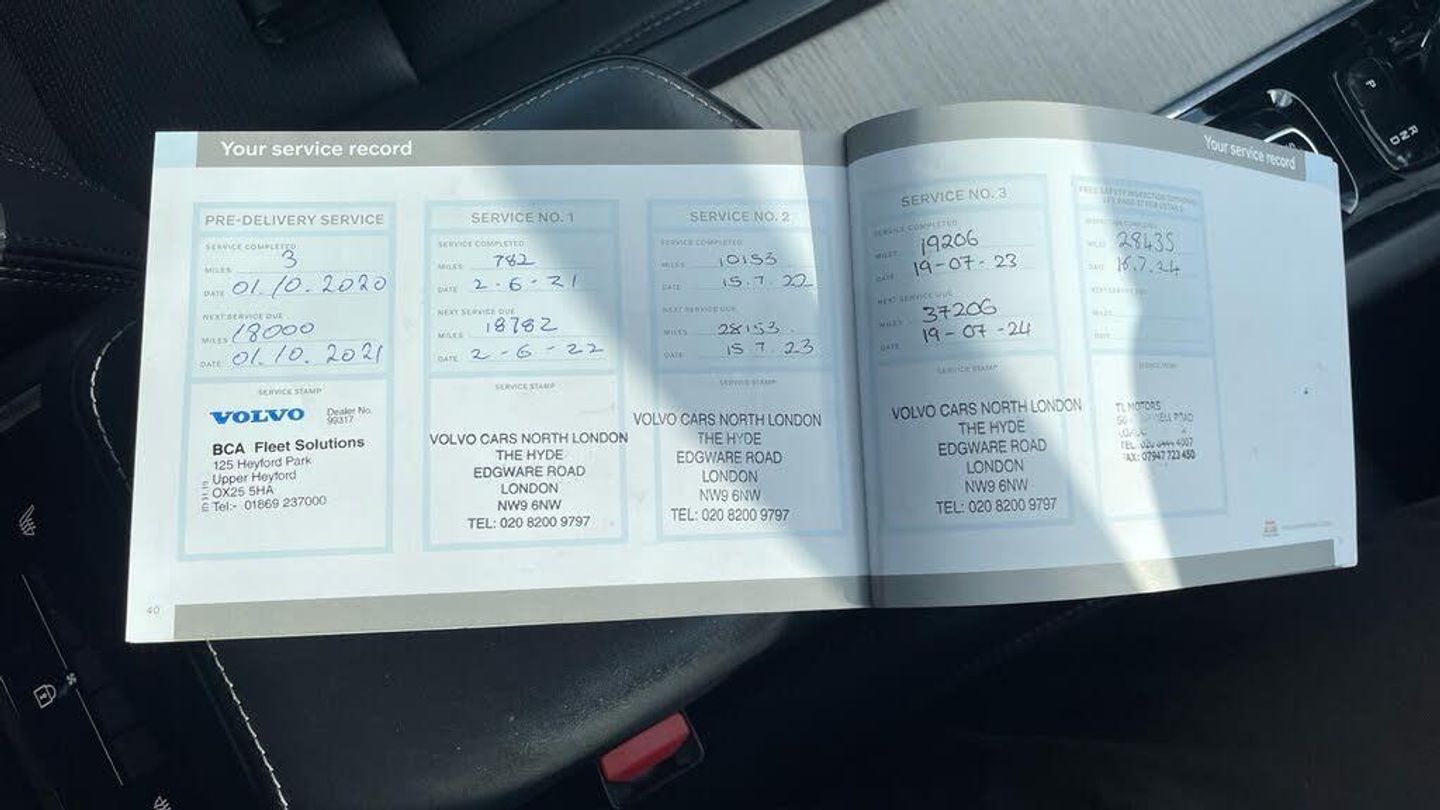 Your service record
PRE-DELIVERY SERVICE
SERVICE COMPLETED
MILES 3
DATE 01.10.2020
NEXT SERVICE DUE
MILES 18000
DATE 01.10.2021
SERVICE STAMP
VOLVO Dealer No.
99317
BCA Fleet Solutions
125 Heyford Park
Upper Heyford
OX25 5HA
Tel:- 01869 237000
SERVICE NO. 1
SERVICE COMPLETED
MILES 782
DATE 2-6-21
NEXT SERVICE DUE
MILES 18782
DATE 2-6-22
SERVICE STAMP
VOLVO CARS NORTH LONDON
THE HYDE
EDGWARE ROAD
LONDON
NW9 6NW
TEL: 020 8200 9797
SERVICE NO. 2
SERVICE COMPLETED
MILES 10153
DATE 15.7.22
NEXT SERVICE DUE
MILES 28153
DATE 15.7.23
SERVICE STAMP
VOLVO CARS NORTH LONDON
THE HYDE
EDGWARE ROAD
LONDON
NW9 6NW
TEL: 020 8200 9797
40
Your service record
SERVICE NO. 3
SERVICE COMPLETED
MILES 19206
DATE 19-07-23
NEXT SERVICE DUE
MILES 37206
DATE 19-07-24
SERVICE STAMP
VOLVO CARS NORTH LONDON
THE HYDE
EDGWARE ROAD
LONDON
NW9 6NW
TEL: 020 8200 9797
FREE SAFETY INSPECTION
MILES 28435
DATE 16.7.24
NEXT SERVICE DUE
MILES
DATE
SERVICE STAMP
MOTORS
TEL: 4007
FAX: 07947 723 450
P
R
N
D